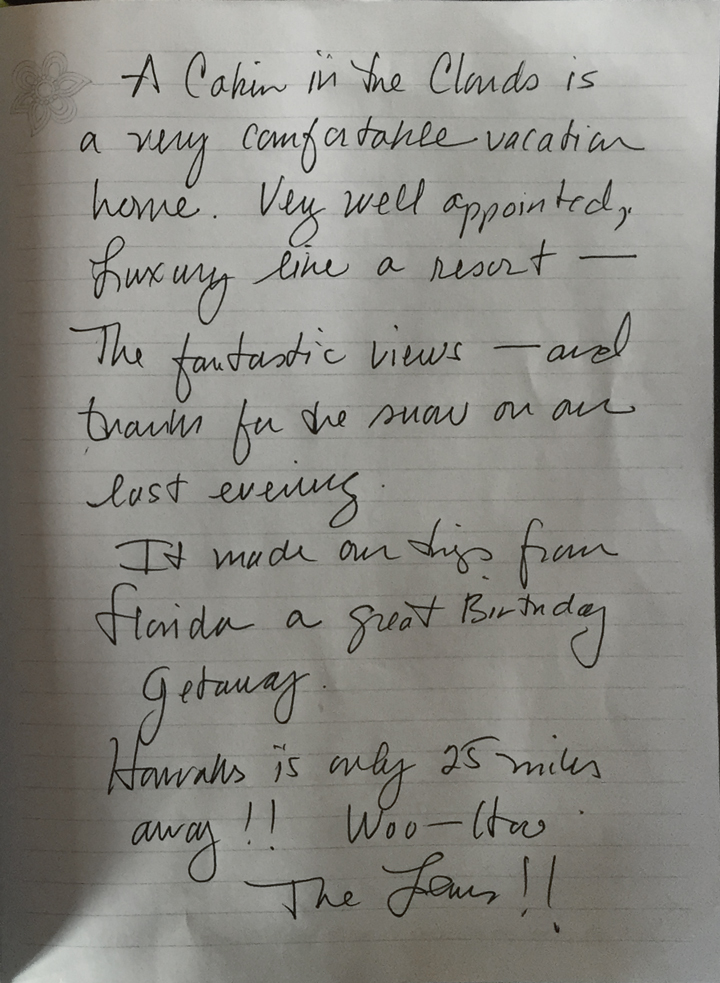 A Cabin in the Clouds is
a very comfortable vacation
home. Very well appointed,
Luxury like a resort —
The fantastic views — and
thanks for the snow on our
last evening.
It made our trip from
Florida a great Birthday
Getaway.
Harrahs is only 25 miles
away!! Woo-Hoo
The !!